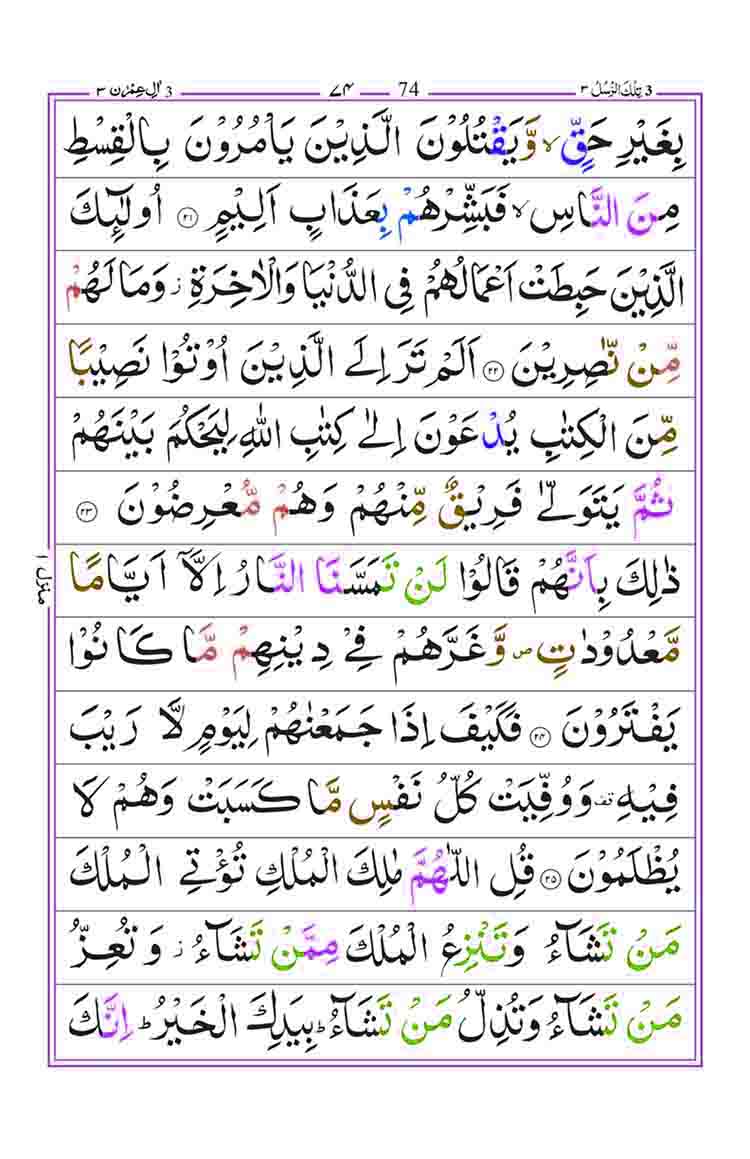 3 تِلْكَ الرُّسُلُ ٣ 74 ٧٤ 3 اٰلِ عِمْرٰن ٣
بِغَيْرِ حَقٍّ ۙ وَّيَقْتُلُوْنَ الَّذِيْنَ يَاْمُرُوْنَ بِالْقِسْطِ
مِنَ النَّاسِ ۙ فَبَشِّرْهُمْ بِعَذَابٍ اَلِيْمٍ ۝٢١ اُولٰٓئِكَ
الَّذِيْنَ حَبِطَتْ اَعْمَالُهُمْ فِى الدُّنْيَا وَالْاٰخِرَةِ ز وَمَا لَهُمْ
مِّنْ نّٰصِرِيْنَ ۝٢٢ اَلَمْ تَرَ اِلَى الَّذِيْنَ اُوْتُوْا نَصِيْبًا
مِّنَ الْكِتٰبِ يُدْعَوْنَ اِلٰى كِتٰبِ اللّٰهِ لِيَحْكُمَ بَيْنَهُمْ
ثُمَّ يَتَوَلّٰى فَرِيْقٌ مِّنْهُمْ وَهُمْ مُّعْرِضُوْنَ ۝٢٣
ذٰلِكَ بِاَنَّهُمْ قَالُوْا لَنْ تَمَسَّنَا النَّارُ اِلَّاۤ اَيَّامًا
مَّعْدُوْدٰتٍ ص وَّغَرَّهُمْ فِيْ دِيْنِهِمْ مَّا كَانُوْا
يَفْتَرُوْنَ ۝٢٤ فَكَيْفَ اِذَا جَمَعْنٰهُمْ لِيَوْمٍ لَّا رَيْبَ
فِيْهِ قف وَوُفِّيَتْ كُلُّ نَفْسٍ مَّا كَسَبَتْ وَهُمْ لَا
يُظْلَمُوْنَ ۝٢٥ قُلِ اللّٰهُمَّ مٰلِكَ الْمُلْكِ تُؤْتِي الْمُلْكَ
مَنْ تَشَآءُ وَتَنْزِعُ الْمُلْكَ مِمَّنْ تَشَآءُ ز وَتُعِزُّ
مَنْ تَشَآءُ وَتُذِلُّ مَنْ تَشَآءُ ؕ بِيَدِكَ الْخَيْرُ ؕ اِنَّكَ
منزل ١